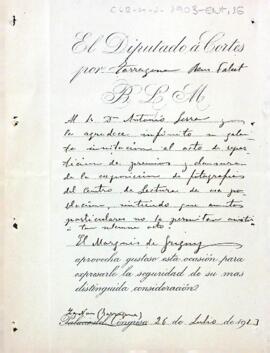 El Diputado á Cortes
por Tarragona Reus Falset
B. L. M.
Al Sr. Dn Antonio Serra y
le agradece infinito su galante
invitación al acto de repar
tición de premios y clausura
de la exposición de fotografías
del Centro de Lectura de esa
población, sintiendo que asuntos
particulares no le permitan asistir
a tan solemne acto.
El Marqués de Grigny
aprovecha gustoso esta ocasión para
expresarle la seguridad de su mas
distinguida consideración.
Palacio del Congreso 26 de Julio de 1903